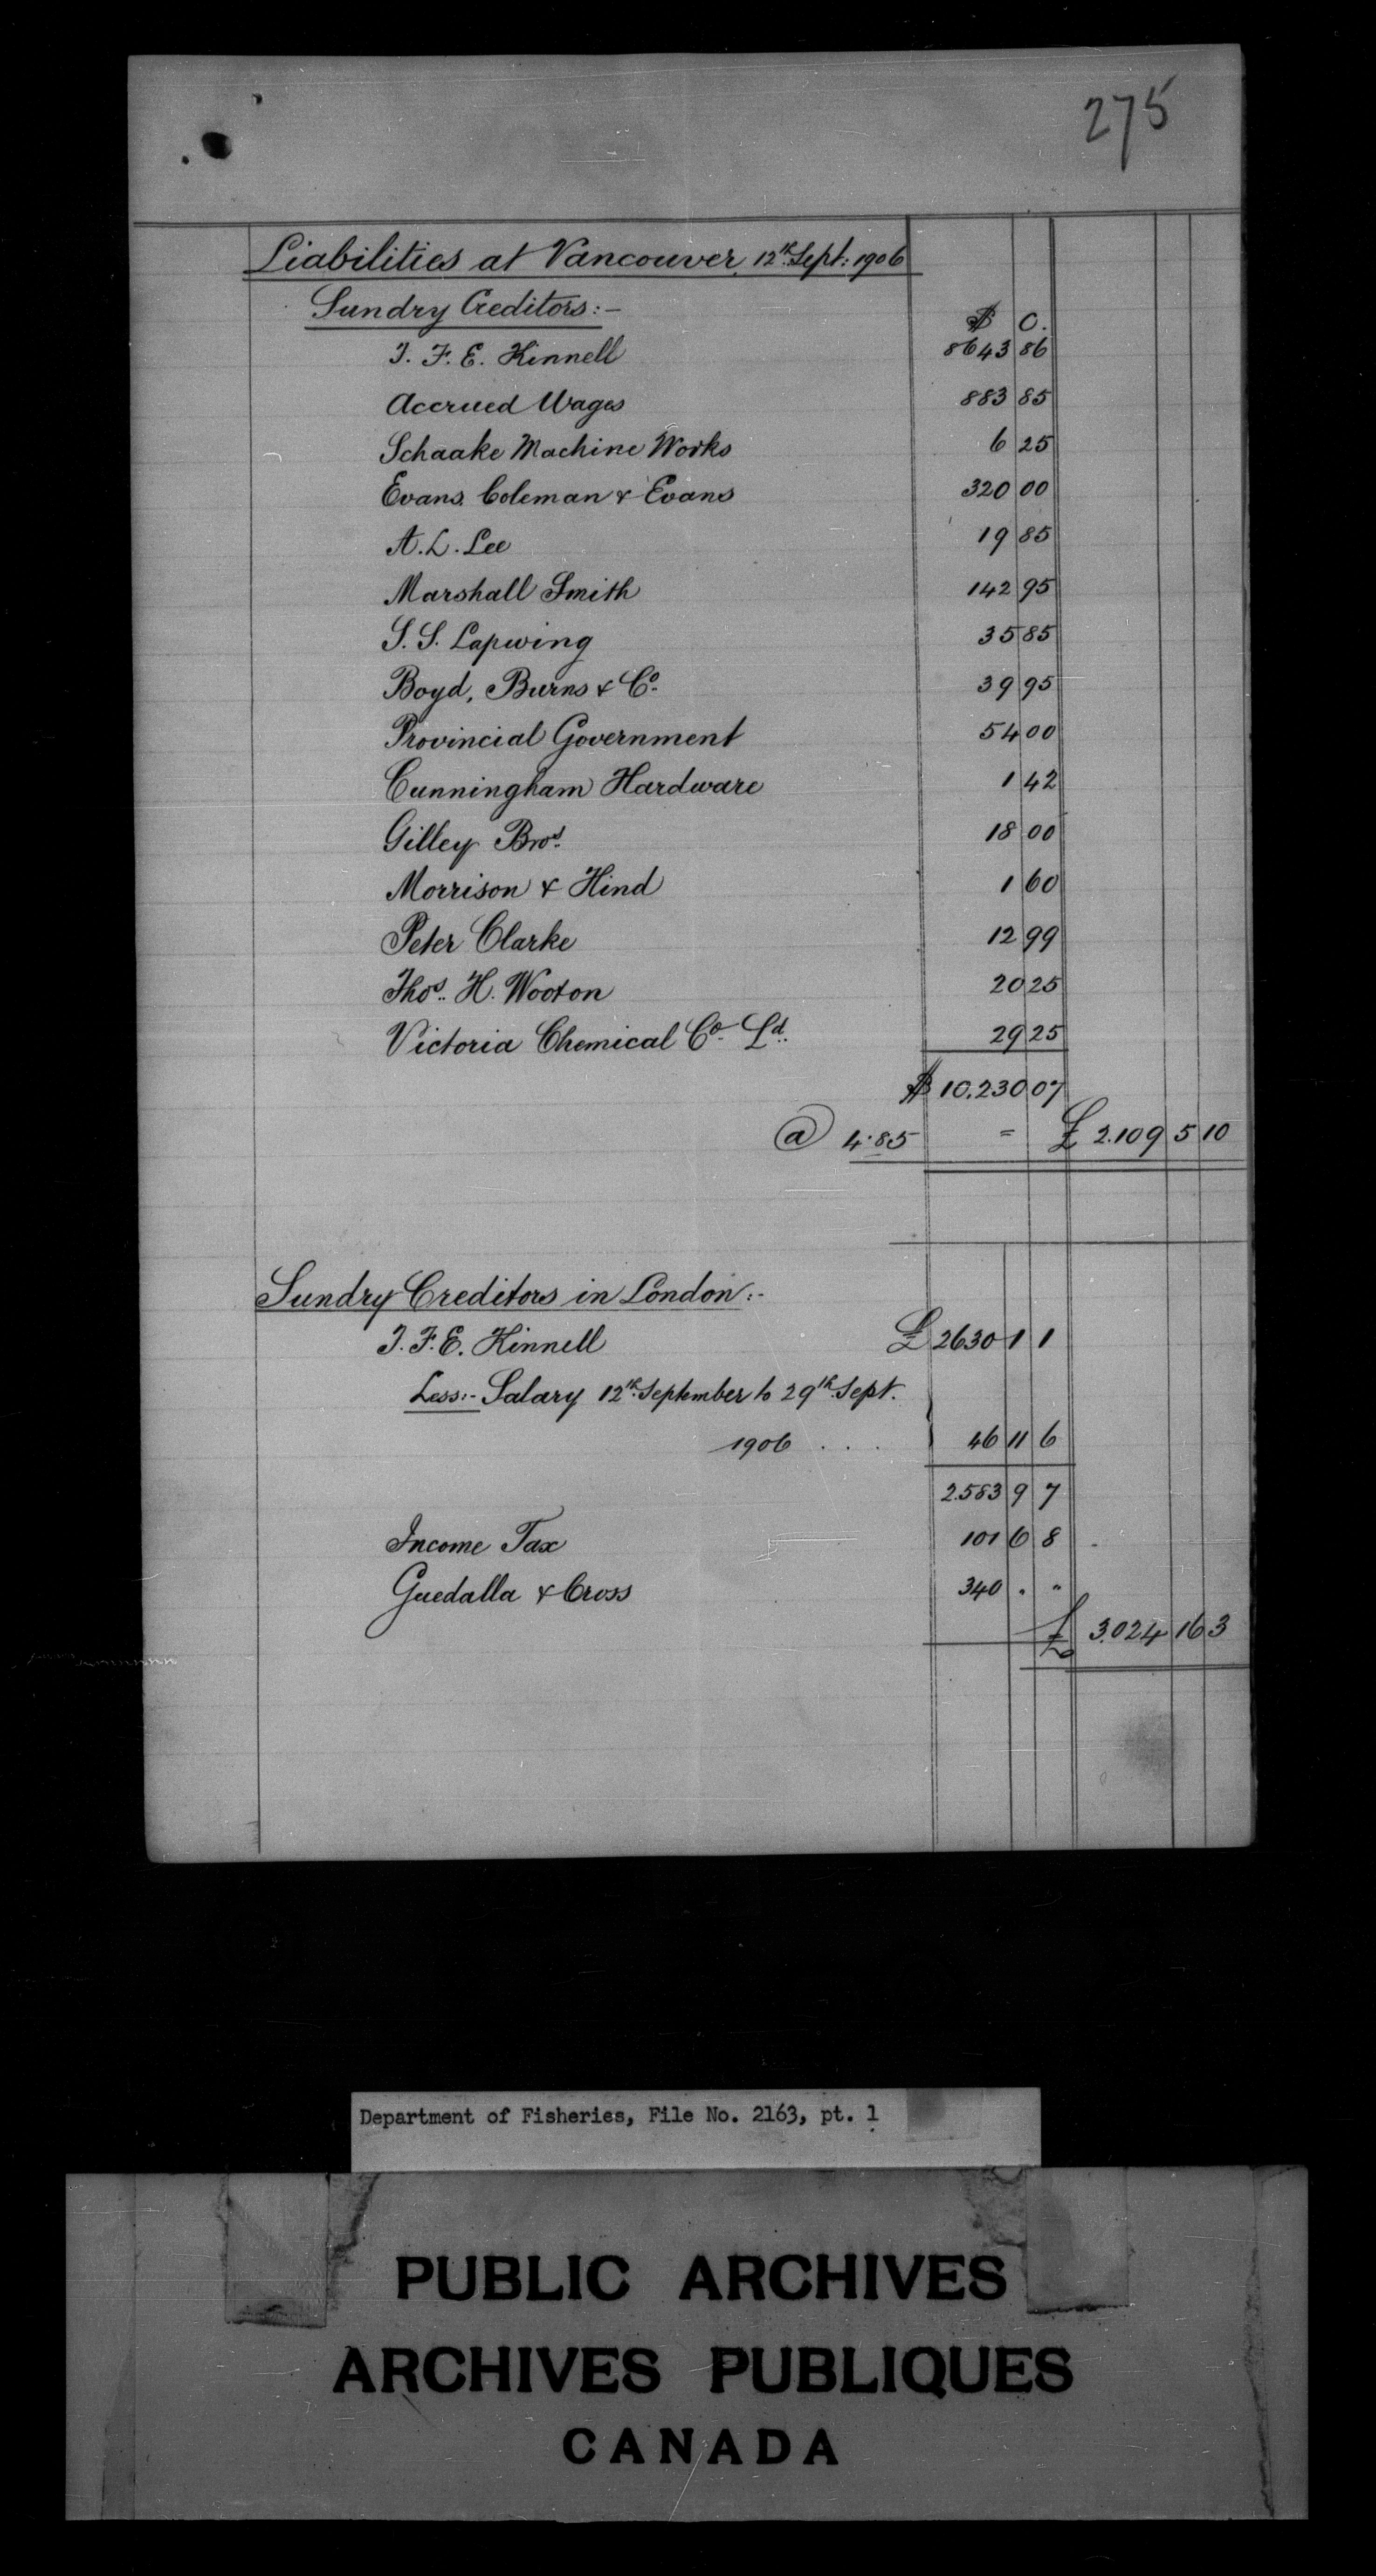 275
Liabilities at Vancouver, 12th Sept: 1906
Sundry Creditors:-
$ C.
T. F. E. Kinnell 8643 86
Accrued Wages 883 85
Schaake Machine Works 6 25
Evans, Coleman & Evans 320 00
A. L. Lee 19 85
Marshall Smith 142 95
S. S. Lapwing 35 85
Boyd, Burns & Co. 39 95
Provincial Government 54 00
Cunningham Hardware 1 42
Gilley Bros. 18 00
Morrison & Hind 1 60
Peter Clarke 12 99
Thos. H. Wooton 20 25
Victoria Chemical Co. Ld. 29 25
$ 10,230 07
@ 4.85 = £ 2,109 5 10
Sundry Creditors in London:-
T. F. E. Kinnell £ 2630 1 1
Less:- Salary 12th September to 29th Sept.
1906 . . . 46 11 6
2,583 9 7
Income Tax 101 6 8
Guedalla & Cross 340 " "
£ 3,024 16 3
Department of Fisheries, File No. 2163, pt. 1
PUBLIC ARCHIVES
ARCHIVES PUBLIQUES
CANADA